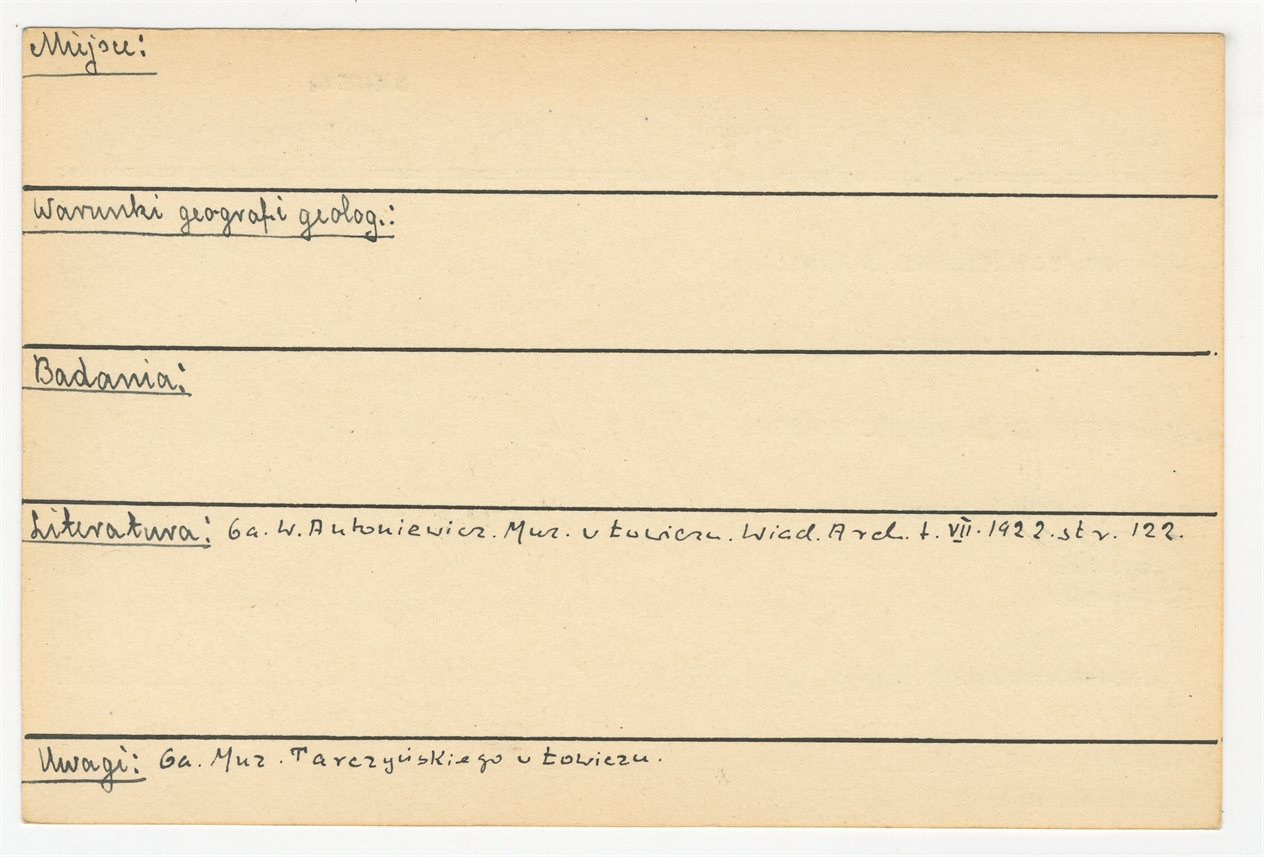 Miejsce:
Warunki geograf.i geolog.:
Badania:
Literatura: 6a. W. Antoniewicz. Muz. w Łowiczu. Wiad. Arch. t. VII. 1922. str. 122.
Uwagi: 6a. Muz. Tarczyńskiego w Łowiczu.